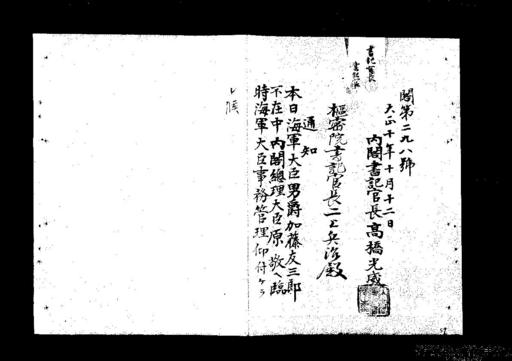 閣第二九八號
大正十年十月十二日
内閣書記官長高橋光威
樞密院書記官長二上兵治殿
通知
本日海軍大臣男爵加藤友三郎
不在中内閣總理大臣原敬ヘ臨
時海軍大臣事務管理仰付ケラ
レ候